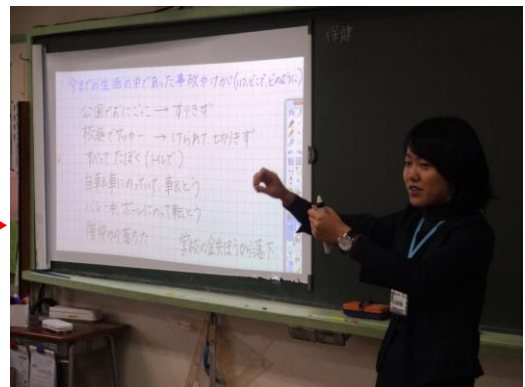 保健
今までの生活の中であった事故やけが(いつ、どこで、どのように)
公園でおにごっこ→すりきず
校庭でサッカー→けられて、切りきず
すべって、だぼく(トイレで)
自転車にのっていて、転とう
バレー中、ボールにのって転とう
階段から落ちた 学校の金失ぼうから落下